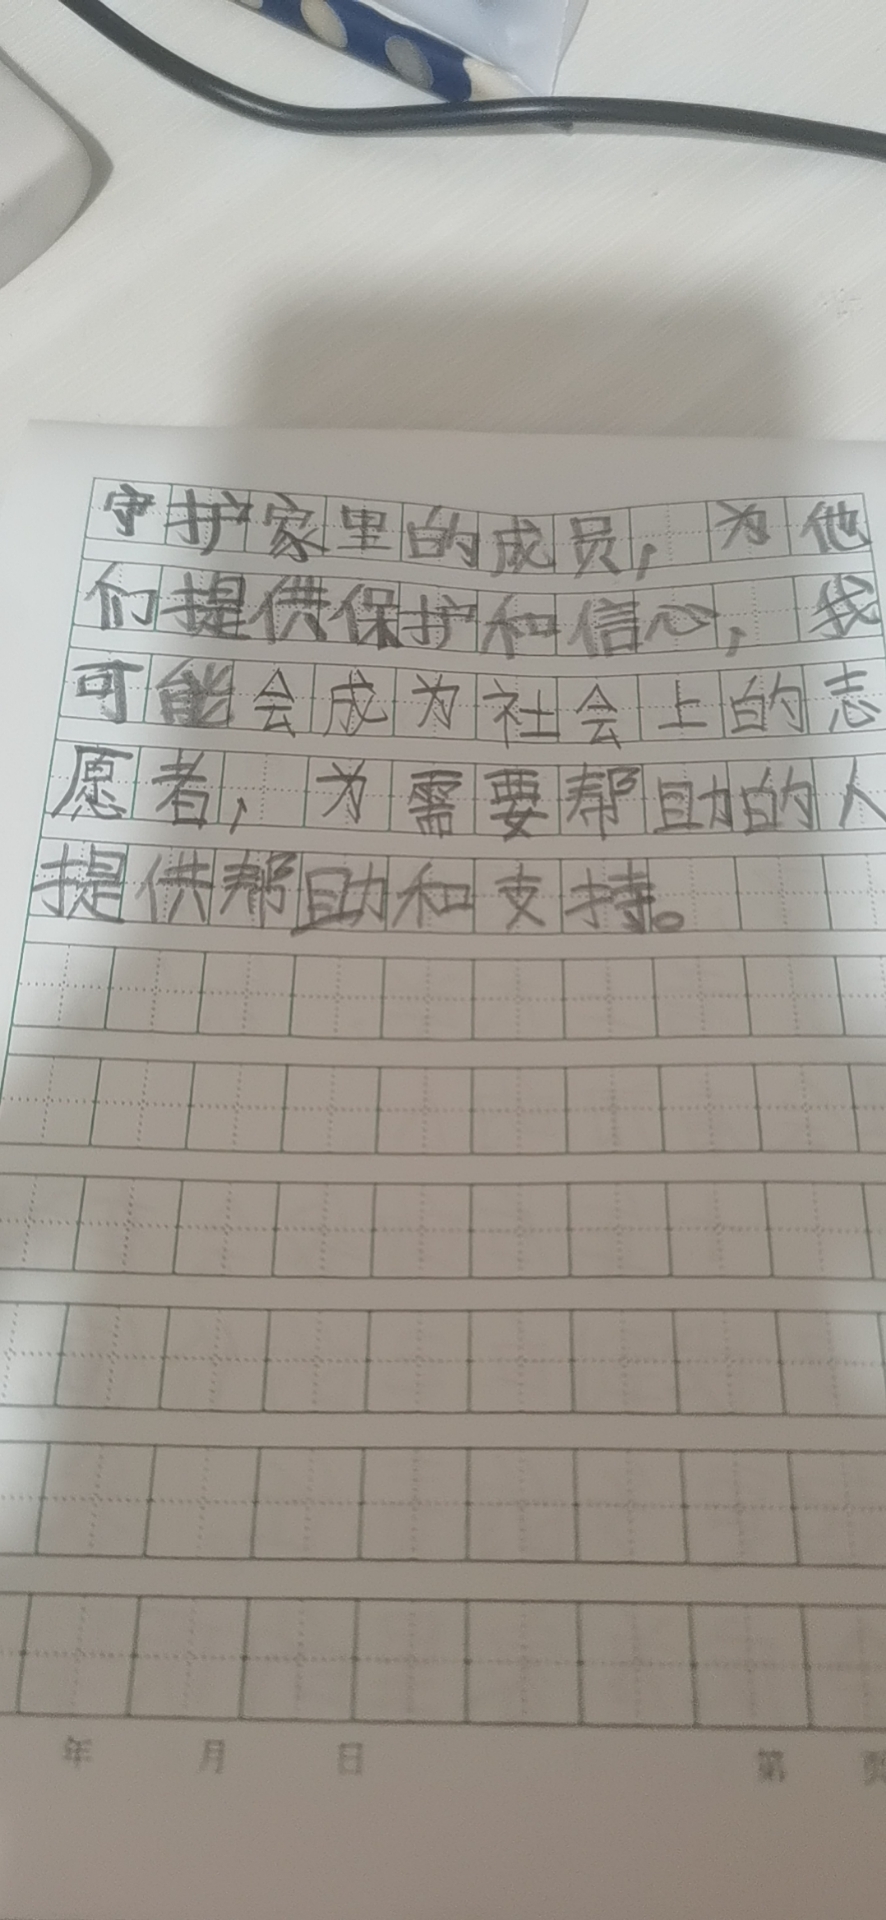 守护家里的成员，为他
们提供保护和信心，我
可能会成为社会上的志
愿者，为需要帮助的人
提供帮助和支持。
年 月 日 第 页